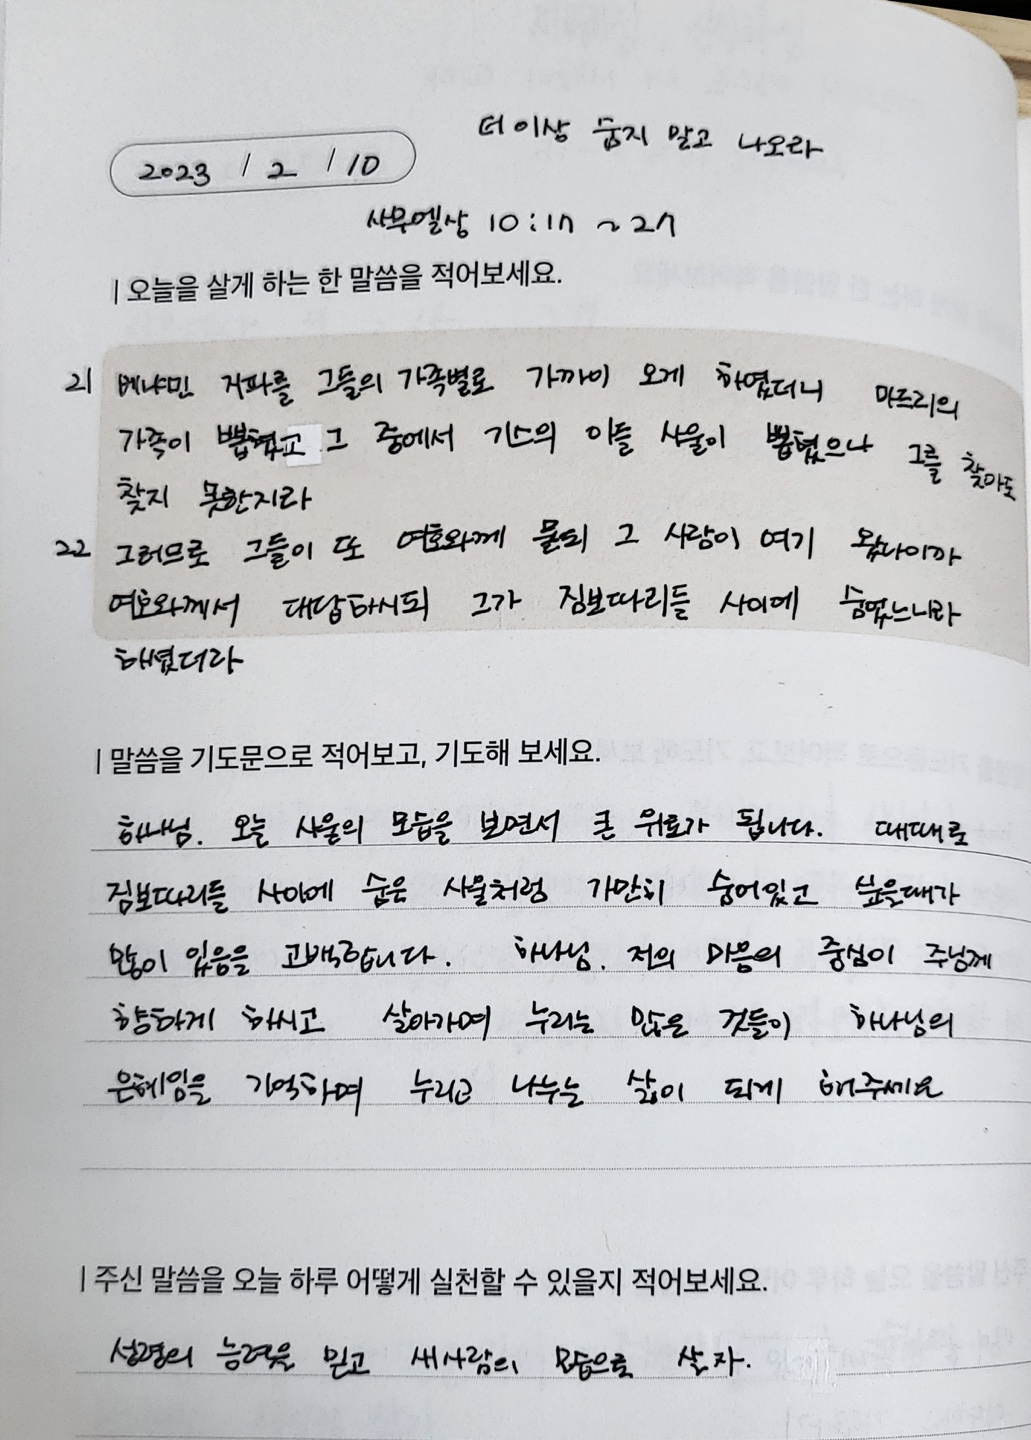 더 이상 숨지 말고 나오라
2023 / 2 / 10
사무엘상 10:17 ~ 27
| 오늘을 살게 하는 한 말씀을 적어보세요.
21 베냐민 지파를 그들의 가족별로 가까이 오게 하였더니 마드리의
가족이 뽑혔고 그 중에서 기스의 아들 사울이 뽑혔으나 그를 찾아도
찾지 못한지라
22 그러므로 그들이 또 여호와께 묻되 그 사람이 여기 왔나이까
여호와께서 대답하시되 그가 짐보따리들 사이에 숨었느니라
하였더라
| 말씀을 기도문으로 적어보고, 기도해 보세요.
하나님. 오늘 사울의 모습을 보면서 큰 위로가 됩니다. 때때로
짐보따리들 사이에 숨은 사울처럼 가만히 숨어있고 싶은때가
많이 있음을 고백합니다. 하나님. 저의 마음의 중심이 주님께
향하게 하시고 살아가며 누리는 많은 것들이 하나님의
은혜임을 기억하며 누리고 나누는 삶이 되게 해주세요
| 주신 말씀을 오늘 하루 어떻게 실천할 수 있을지 적어보세요.
성령의 능력을 믿고 새사람의 모습으로 살자.